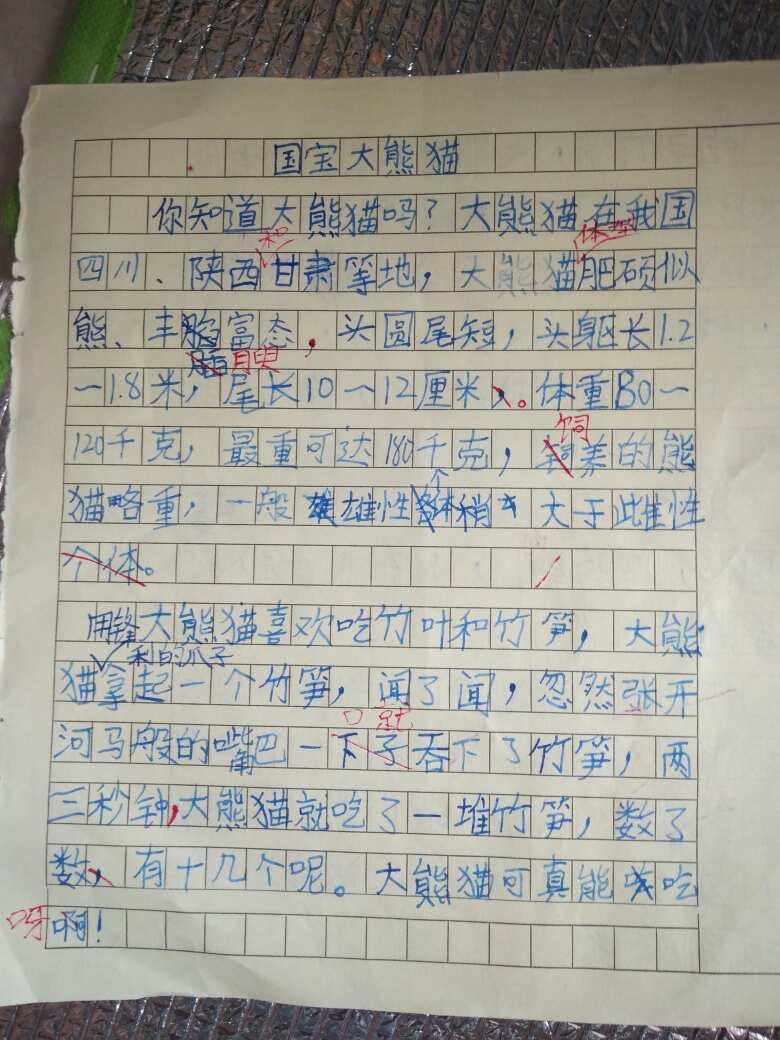 国宝大熊猫
你知道大熊猫吗？大熊猫在我国
和 体型
四川、陕西甘肃等地，大熊猫肥硕似
熊、丰腴富态，头圆尾短，头躯长1.2
腴
一1.8米，尾长10一12厘米。体重80一
饲
120千克，最重可达180千克，饲养的熊
猫略重，一般雄性个体稍大于雌性
个体。
大熊猫喜欢吃竹叶和竹笋，大熊
用锋利的爪子
猫拿起一个竹笋，闻了闻，忽然张开
口就
河马般的嘴巴一下子吞下了竹笋，两
三秒钟，大熊猫就吃了一堆竹笋，数了
数，有十几个呢。大熊猫可真能吃
呀啊！